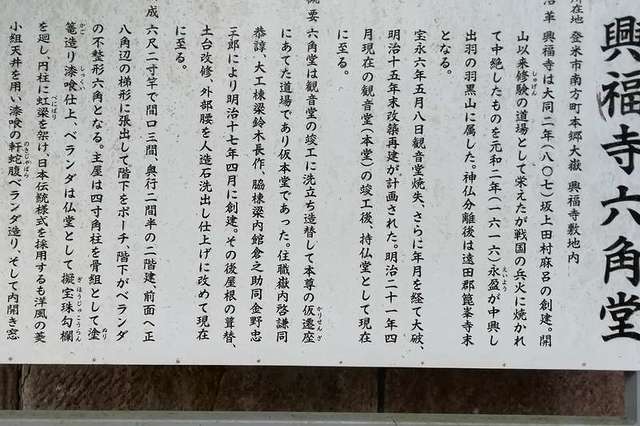 興福寺六角堂
所在地 登米市南方町本郷大嶽 興福寺敷地内
沿革 興福寺は大同二年(八〇七)坂上田村麻呂の創建。開
山以来修験の道場として栄えたが戦国の兵火に焼かれ
て中絶したものを元和二年(一六一六)永盈が中興し
出羽の羽黒山に属した。神仏分離後は遠田郡箆峯寺末
となる。
宝永六年五月八日観音堂焼失、さらに年月を経て大破、
明治十五年末改築再建が計画された。明治二十一年四
月現在の観音堂(本堂)の竣工後、持仏堂として現在
に至る。
概要 六角堂は観音堂の竣工に洗立ち造替して本尊の仮遷座
にあてた道場であり仮本堂であった。住職嶽内啓謙同
恭諄、大工棟梁鈴木長作、脇棟梁内館倉之助同金野忠
三郎により明治十七年四月に創建。その後屋根の葺替、
土台改修、外部腰を人造石洗出し仕上げに改めて現在
に至る。
成 六尺二寸竿で間口三間、奥行二間半の二階建 前面へ正
八角辺の梯形に張出して階下をポーチ、階下がベランダ
の不整形六角となる。主屋は四寸角柱を骨組として塗
篭造り漆喰仕上、ベランダは仏堂として擬宝珠勾欄
を廻し、円柱に虹梁を架け、日本伝統様式を採用するも洋風の菱
小組天井を用い漆喰の軒蛇腹ベランダ造り、そして内開き窓